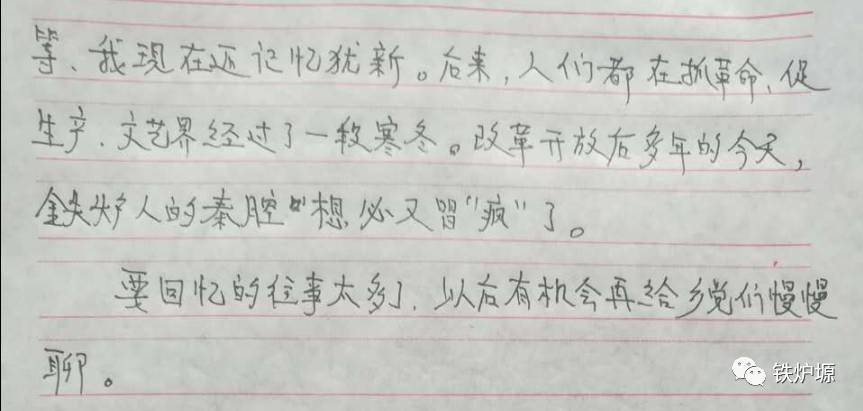 等、我现在还记忆犹新。后来，人们都在抓革命、促
生产、文艺界经过了一段寒冬。改革开放后多年的今天，
铁炉人的秦腔"想必又冒"疯"了。
要回忆的往事太多了，以后有机会再给乡党们慢慢
聊。
铁炉塬